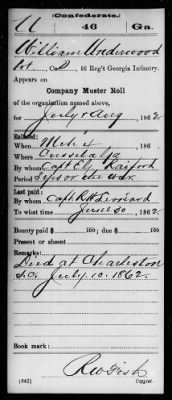 (Confederate.)
U 46 Ga.
William Underwood
Co. D, 46 Reg't Georgia Infantry.
Appears on
Company Muster Roll
of the organization named above,
for July & Aug, 186 2.
Enlisted:
When Mch 4, 186 2.
Where Cusseta Ga
By whom Capt
Period 3 yrs or the war
Last paid:
By whom Capt. R. H.
To what time June 30, 186 2.
Bounty paid $ 100; due $ 100
Present or absent
Remarks:
Died at Charleston
S.C. July 10. 1862.
Book mark:
(642) Copyist.